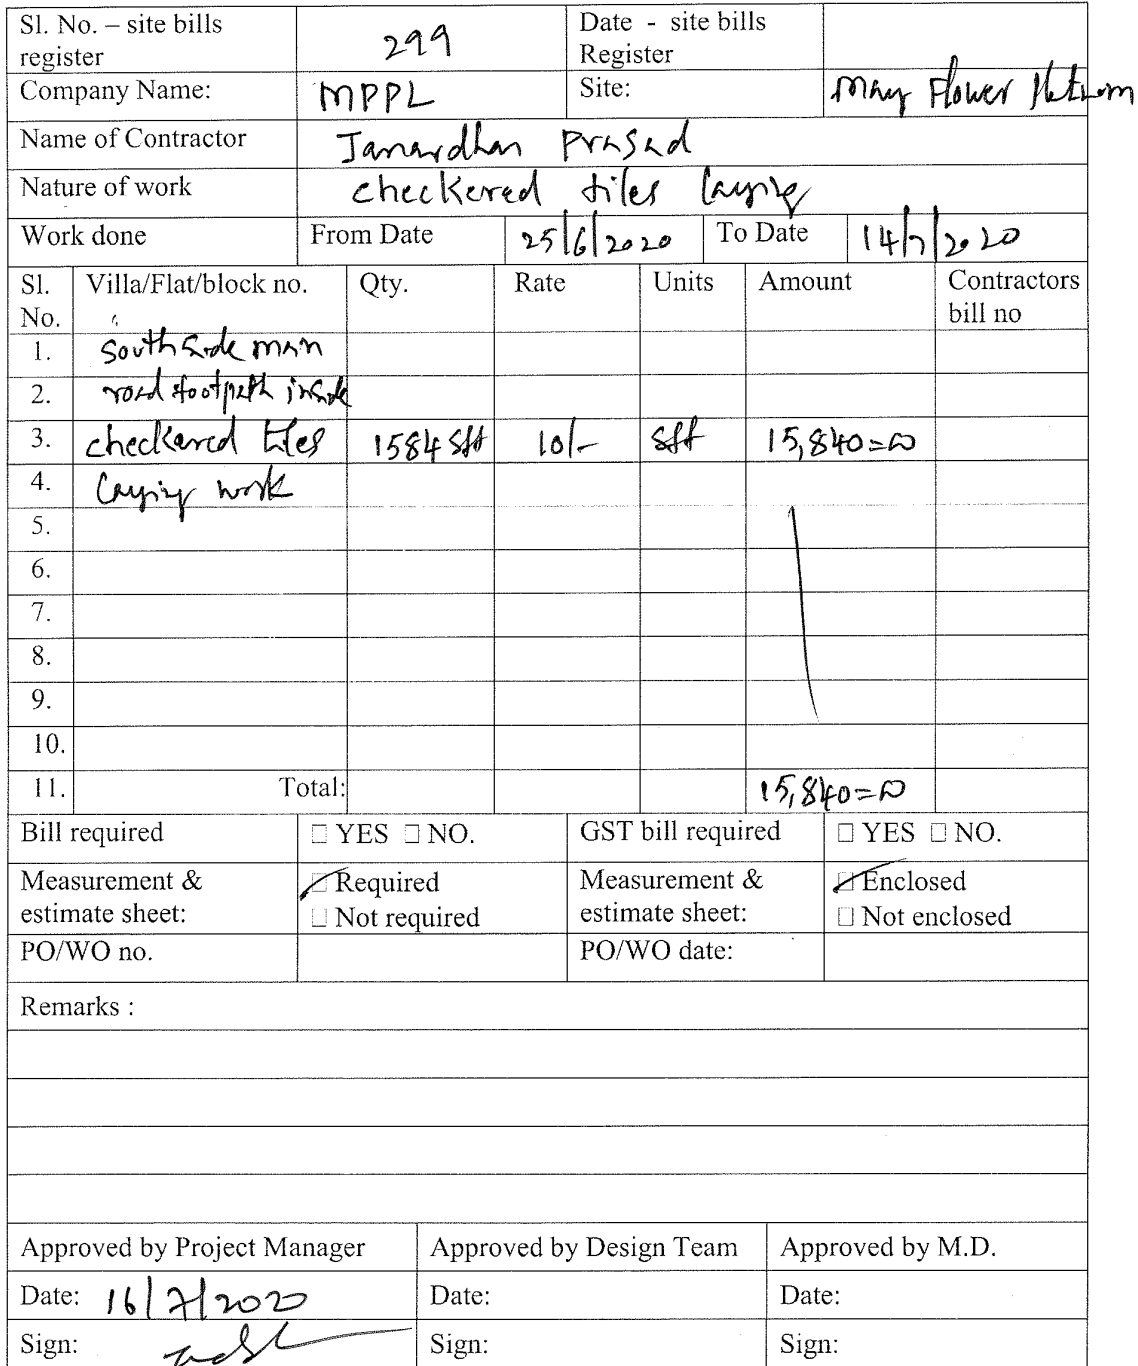 Sl. No. – site bills register 299 Date - site bills Register
Company Name: MPPL Site: May Flower Platinum
Name of Contractor Janardhan Prasad
Nature of work checkered tiles laying
Work done From Date 25/6/2020 To Date 14/7/2020
Sl. No. Villa/Flat/block no. Qty. Rate Units Amount Contractors bill no
1. South side main
2. road footpath inside
3. checkered tiles 1584 sft 10/- sft 15,840=00
4. laying work
5.
6.
7.
8.
9.
10.
11. Total: 15,840=00
Bill required □ YES □ NO. GST bill required □ YES □ NO.
Measurement & estimate sheet: ☑ Required □ Not required Measurement & estimate sheet: ☑ Enclosed □ Not enclosed
PO/WO no. PO/WO date:
Remarks :
Approved by Project Manager Approved by Design Team Approved by M.D.
Date: 16/7/2020 Date: Date:
Sign: Sign: Sign: